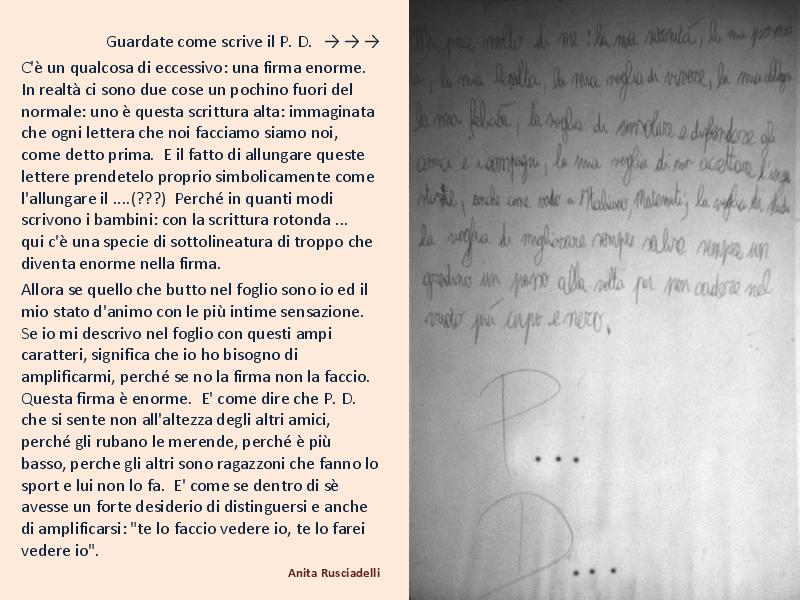 Guardate come scrive il P. D. → → →
C'è un qualcosa di eccessivo: una firma enorme.
In realtà ci sono due cose un pochino fuori del
normale: uno è questa scrittura alta: immaginata
che ogni lettera che noi facciamo siamo noi,
come detto prima. E il fatto di allungare queste
lettere prendetelo proprio simbolicamente come
l'allungare il ....(???) Perché in quanti modi
scrivono i bambini: con la scrittura rotonda ...
qui c'è una specie di sottolineatura di troppo che
diventa enorme nella firma.
Allora se quello che butto nel foglio sono io ed il
mio stato d'animo con le più intime sensazione.
Se io mi descrivo nel foglio con questi ampi
caratteri, significa che io ho bisogno di
amplificarmi, perché se no la firma non la faccio.
Questa firma è enorme. E' come dire che P. D.
che si sente non all'altezza degli altri amici,
perché gli rubano le merende, perché è più
basso, perche gli altri sono ragazzoni che fanno lo
sport e lui non lo fa. E' come se dentro di sè
avesse un forte desiderio di distinguersi e anche
di amplificarsi: "te lo faccio vedere io, te lo farei
vedere io".
Anita Rusciadelli
Mi piace molto di me: la mia serenità, la mia
la mia lealtà, la mia voglia di vivere, la mia
la mia felicità, la voglia di consolare e difendere gli
amici e i compagni, la mia voglia di non accettare
anche come vado a Italiano, Matematica; la voglia di
la voglia di migliorare sempre salire sempre un
gradino un passo alla volta per non cadere nel
vuoto più cupo e nero.
P...
D...